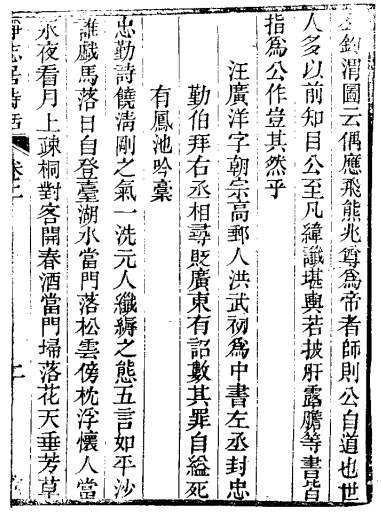 釣渭圖云偶應飛熊兆尊為帝者師則公自道也世
人多以前知目公至凡緯讖堪輿若披肝露膽等書皆
指為公作豈其然乎
汪廣洋字朝宗高郵人洪武初為中書左丞封忠
勤伯拜右丞相尋貶廣東有詔數其罪自縊死
有鳳池吟稾
忠勤詩饒清剛之氣一洗元人纖縟之態五言如平沙
誰戲馬落日自登臺湖水當門落松雲傍枕浮懷人當
永夜看月上疎桐對客開春酒當門埽落花天垂芳草
靜志居詩話 卷二